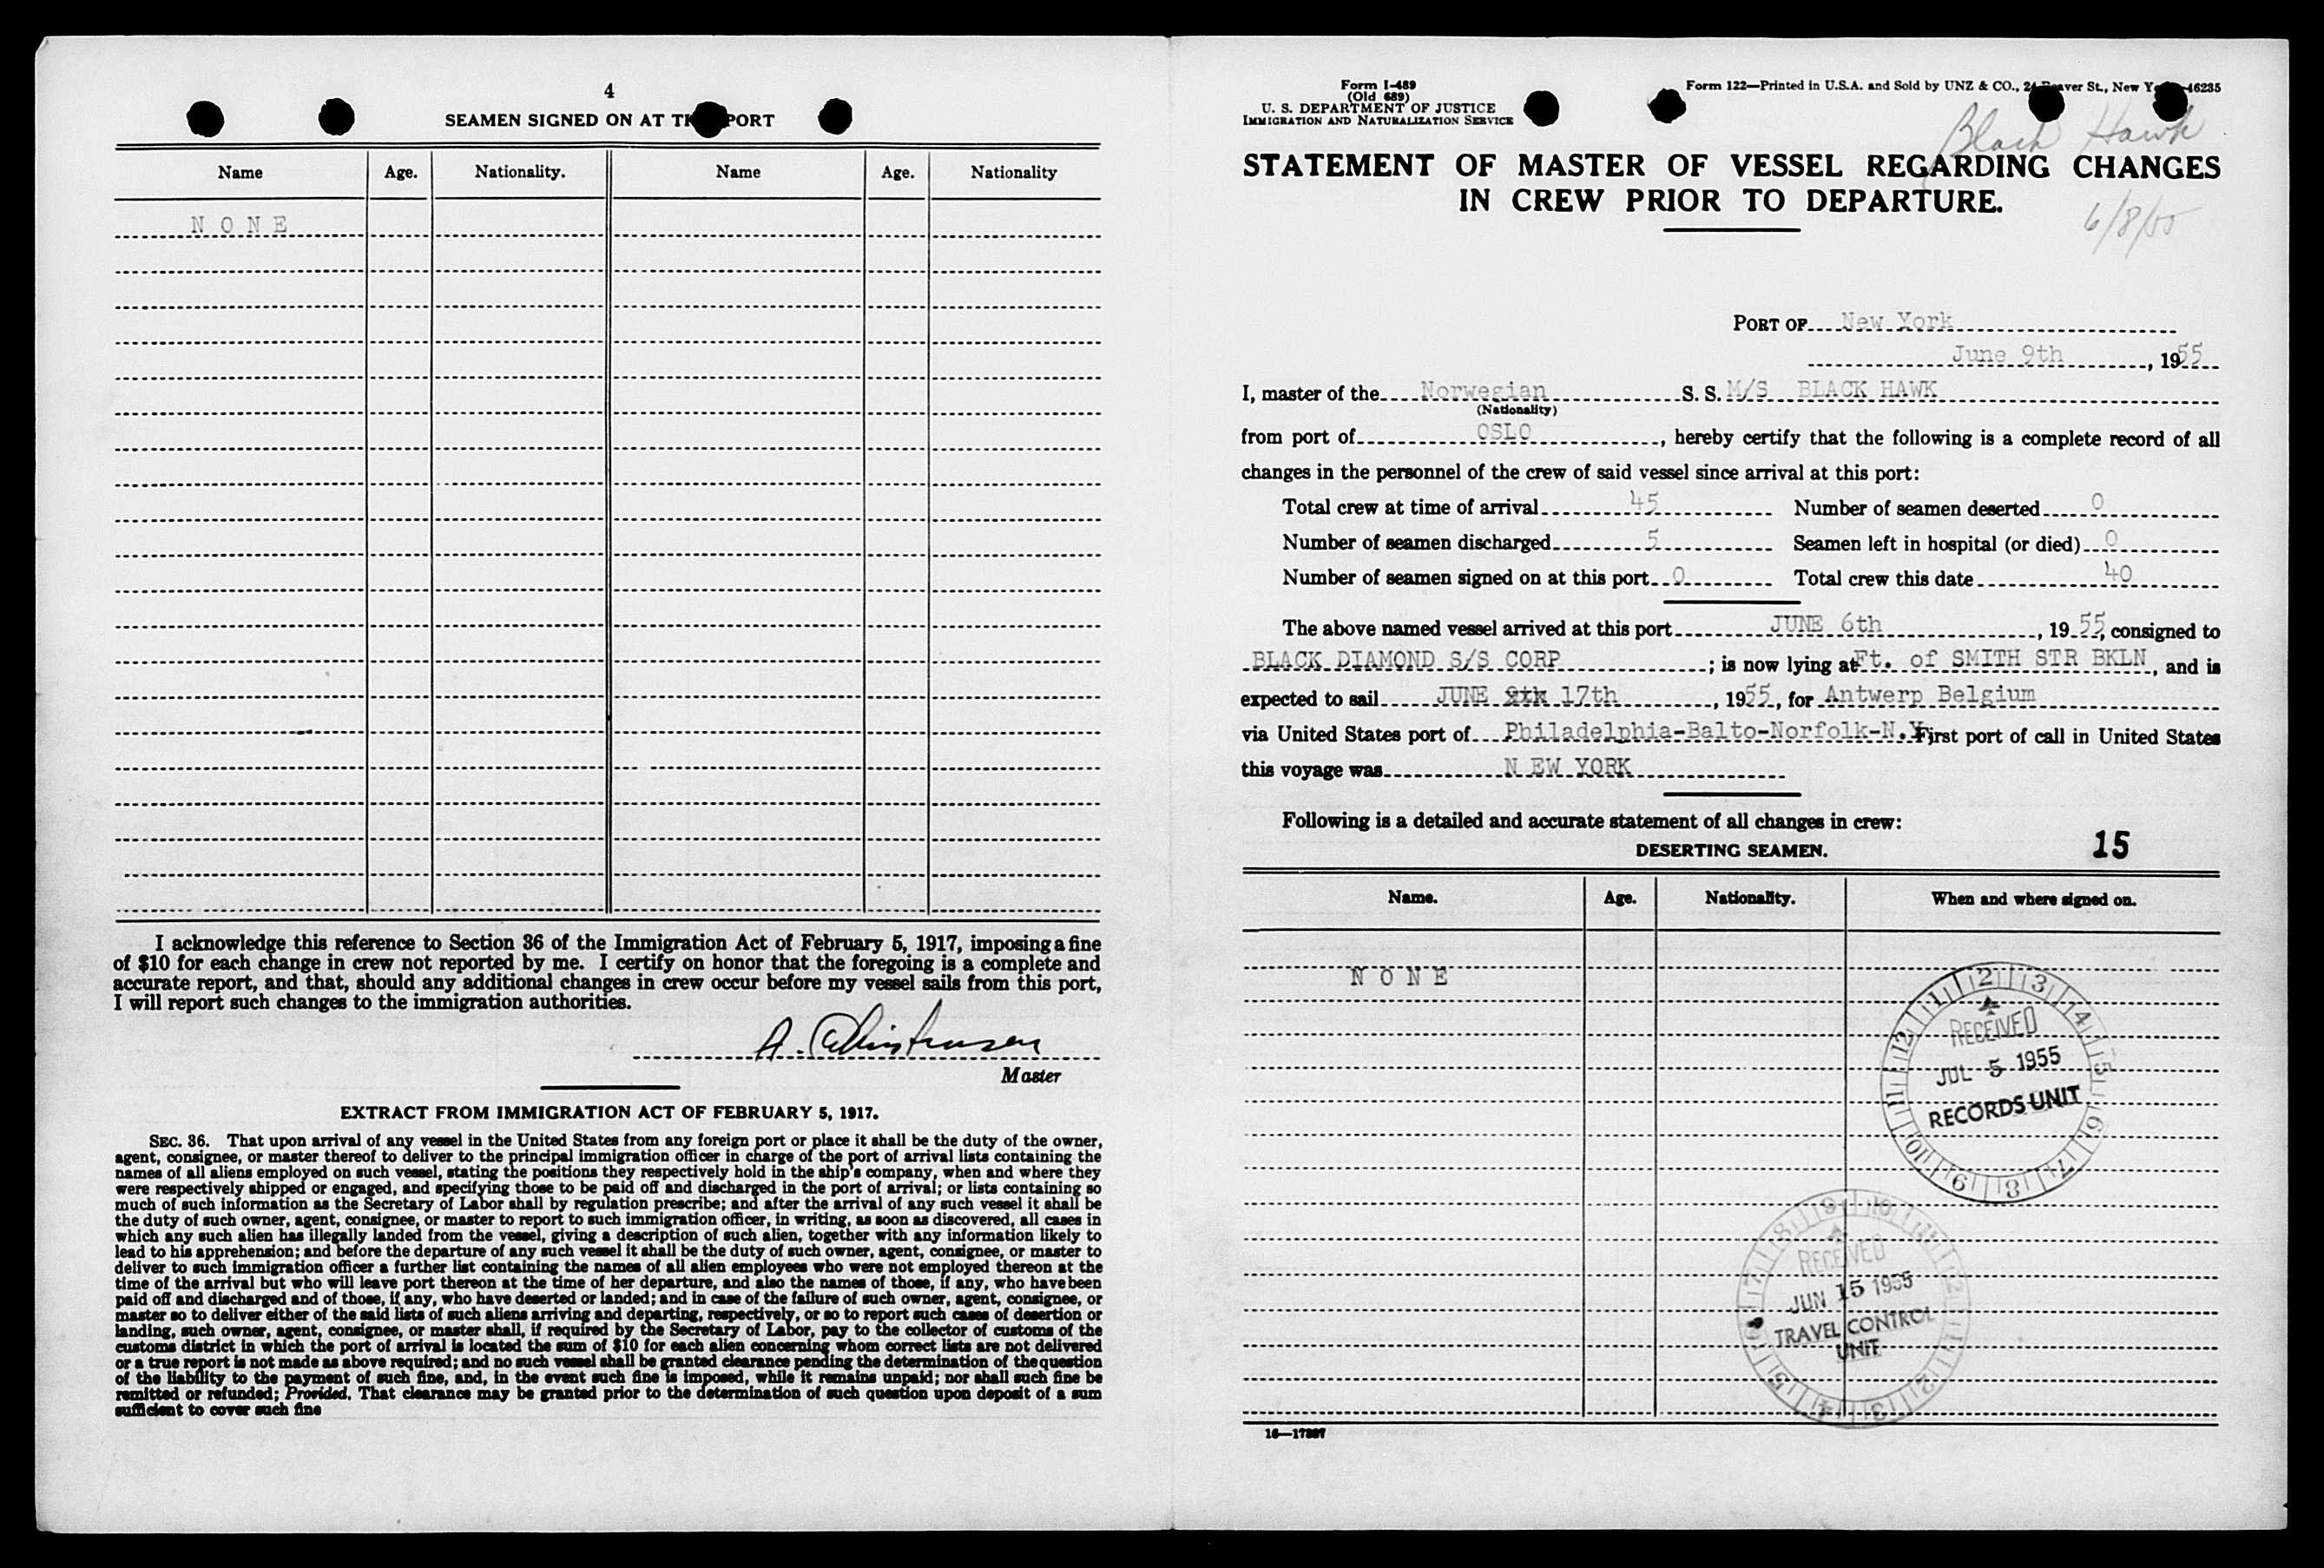 4
SEAMEN SIGNED ON AT PORT
Name Age. Nationality. Name Age. Nationality
N O N E
I acknowledge this reference to Section 36 of the Immigration Act of February 5, 1917, imposing a fine
of $10 for each change in crew not reported by me. I certify on honor that the foregoing is a complete and
accurate report, and that, should any additional changes in crew occur before my vessel sails from this port,
I will report such changes to the immigration authorities.
A. Christensen
Master
EXTRACT FROM IMMIGRATION ACT OF FEBRUARY 5, 1917.
SEC. 36. That upon arrival of any vessel in the United States from any foreign port or place it shall be the duty of the owner,
agent, consignee, or master thereof to deliver to the principal immigration officer in charge of the port of arrival lists containing the
names of all aliens employed on such vessel, stating the positions they respectively hold in the ship's company, when and where they
were respectively shipped or engaged, and specifying those to be paid off and discharged in the port of arrival; or lists containing so
much of such information as the Secretary of Labor shall by regulation prescribe; and after the arrival of any such vessel it shall be
the duty of such owner, agent, consignee, or master to report to such immigration officer, in writing, as soon as discovered, all cases in
which any such alien has illegally landed from the vessel, giving a description of such alien, together with any information likely to
lead to his apprehension; and before the departure of any such vessel it shall be the duty of such owner, agent, consignee, or master to
deliver to such immigration officer a further list containing the names of all alien employees who were not employed thereon at the
time of the arrival but who will leave port thereon at the time of her departure, and also the names of those, if any, who have been
paid off and discharged and of those, if any, who have deserted or landed; and in case of the failure of such owner, agent, consignee, or
master so to deliver either of the said lists of such aliens arriving and departing, respectively, or so to report such cases of desertion or
landing, such owner, agent, consignee, or master shall, if required by the Secretary of Labor, pay to the collector of customs of the
customs district in which the port of arrival is located the sum of $10 for each alien concerning whom correct lists are not delivered
or a true report is not made as above required; and no such vessel shall be granted clearance pending the determination of the question
of the liability to the payment of such fine, and, in the event such fine is imposed, while it remains unpaid; nor shall such fine be
remitted or refunded; Provided, That clearance may be granted prior to the determination of such question upon deposit of a sum
sufficient to cover such fine
Form I-489
(Old 689)
U. S. DEPARTMENT OF JUSTICE
IMMIGRATION AND NATURALIZATION SERVICE
Form 122—Printed in U.S.A. and Sold by UNZ & CO., St., New 46235
Black Hawk
STATEMENT OF MASTER OF VESSEL REGARDING CHANGES
IN CREW PRIOR TO DEPARTURE.
6/8/55
PORT OF New York
June 9th, 1955
I, master of the Norwegian S. S. M/S BLACK HAWK
(Nationality)
from port of OSLO, hereby certify that the following is a complete record of all
changes in the personnel of the crew of said vessel since arrival at this port:
Total crew at time of arrival 45 Number of seamen deserted 0
Number of seamen discharged 5 Seamen left in hospital (or died) 0
Number of seamen signed on at this port 0 Total crew this date 40
The above named vessel arrived at this port JUNE 6th, 1955, consigned to
BLACK DIAMOND S/S CORP; is now lying at Ft. of SMITH STR BKLN, and is
expected to sail JUNE 17th, 1955, for Antwerp Belgium
via United States port of Philadelphia-Balto-Norfolk-N.Y. First port of call in United States
this voyage was N EW YORK
Following is a detailed and accurate statement of all changes in crew:
DESERTING SEAMEN. 15
Name. Age. Nationality. When and where signed on.
N O N E
1 2 3 4 5 6 7 8 9 10 11 12
RECEIVED
JUL 5 1955
RECORDS UNIT
RECEIVED
JUN 15 1955
TRAVEL CONTROL
UNIT